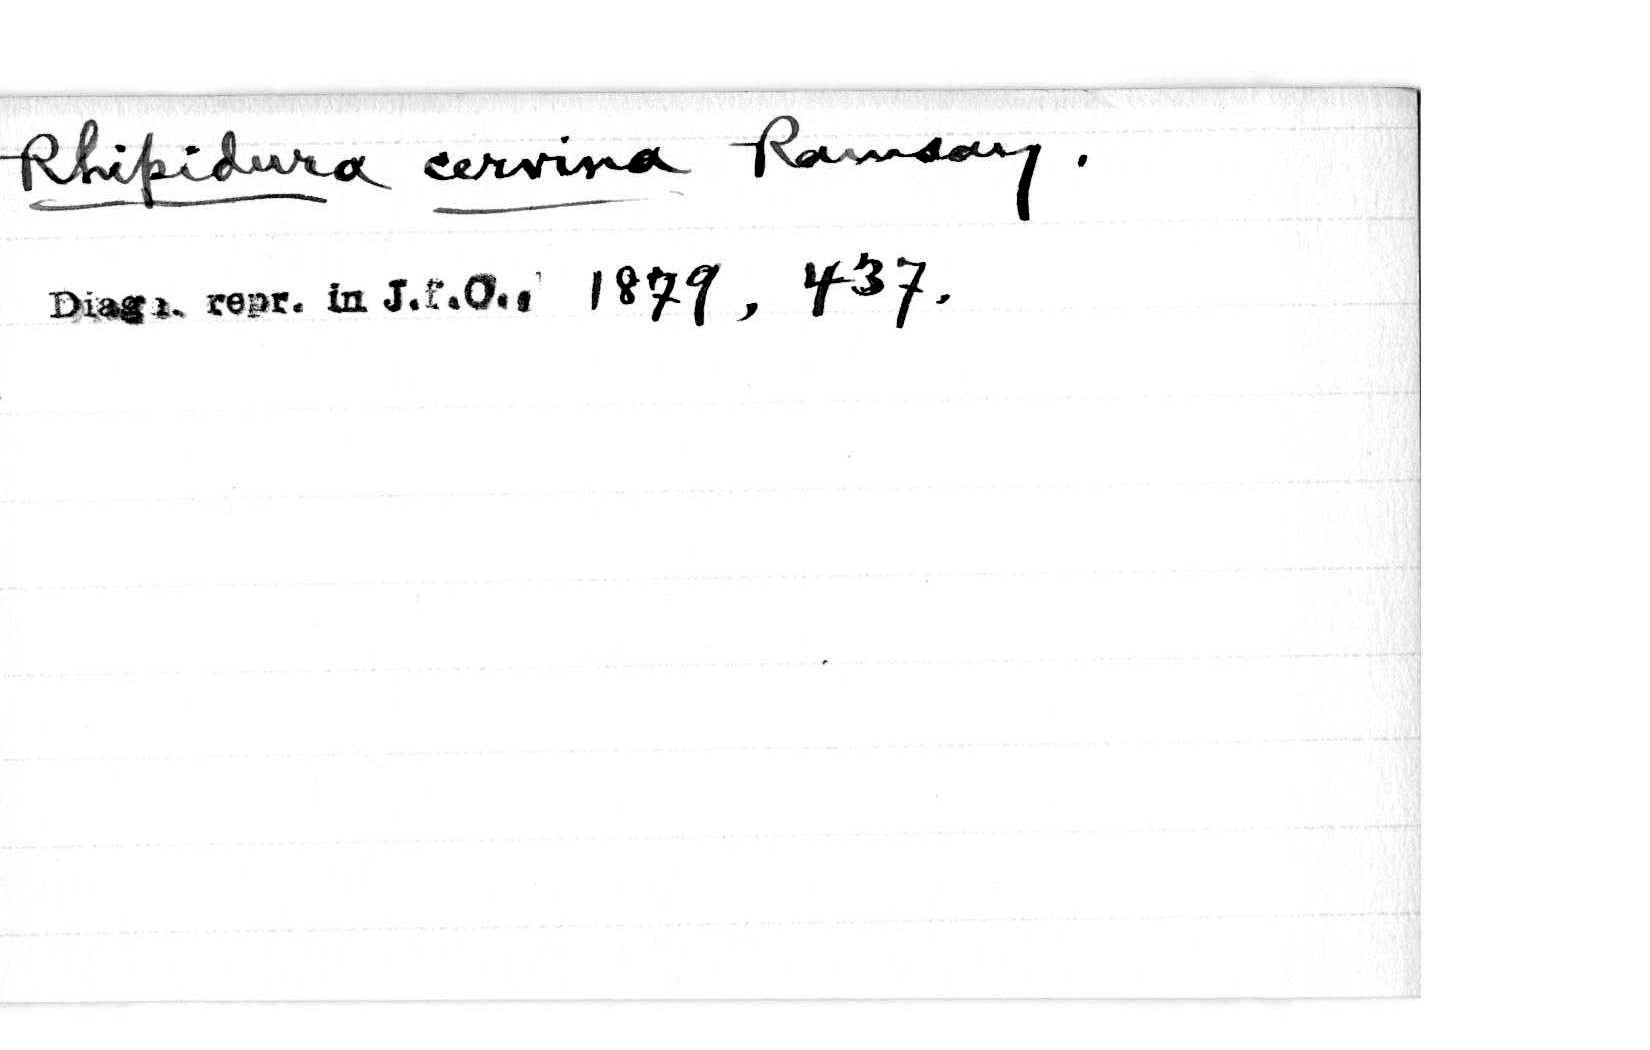 Rhipidura cervina Ramsay.
Diagn. repr. in J.f.O., 1879, 437.